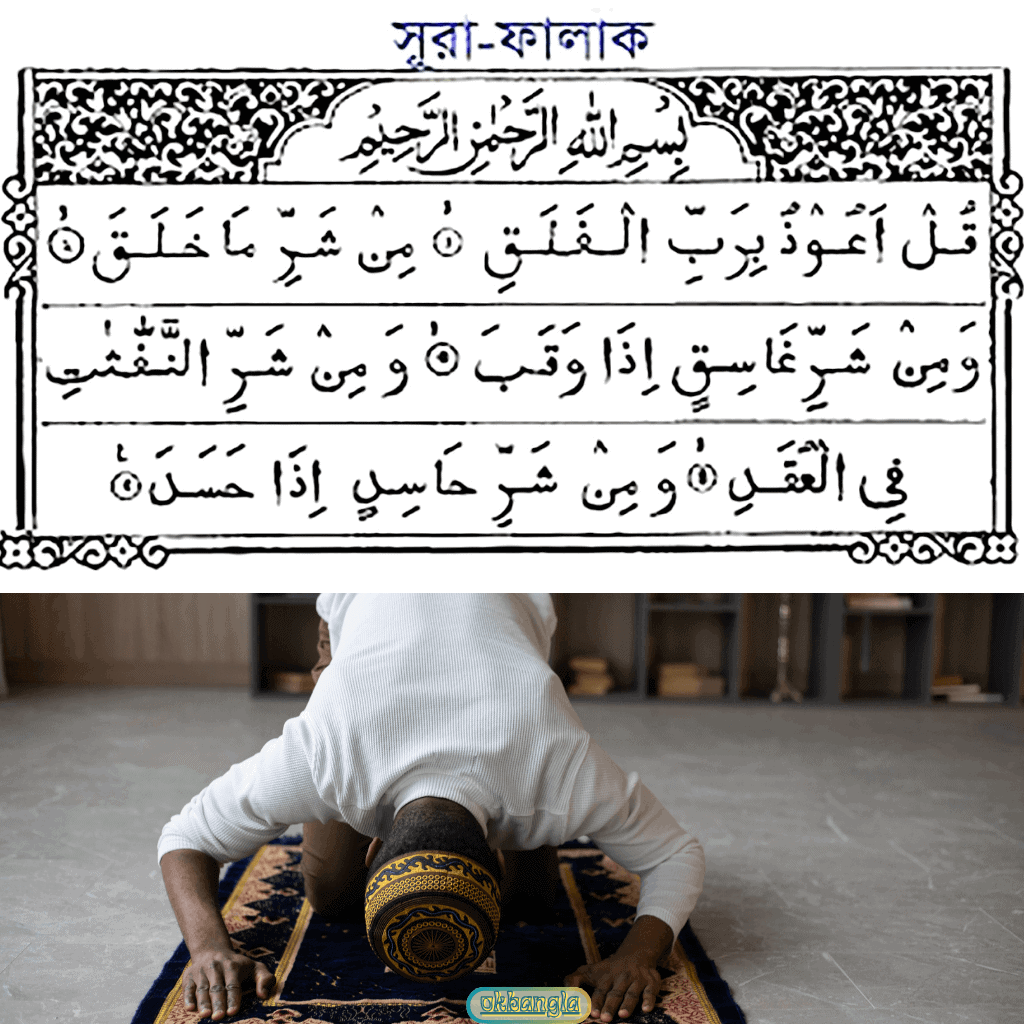 সূরা-ফালাক
بِسْمِ اللهِ الرَّحْمٰنِ الرَّحِيْمِ
قُلْ اَعُوْذُ بِرَبِّ الْفَلَقِ ۝١ مِنْ شَرِّ مَا خَلَقَ ۝٢
وَ مِنْ شَرِّ غَاسِقٍ اِذَا وَقَبَ ۝٣ وَ مِنْ شَرِّ النَّفّٰثٰتِ
فِى الْعُقَدِ ۝٤ وَ مِنْ شَرِّ حَاسِدٍ اِذَا حَسَدَ ۝٥
okbangla